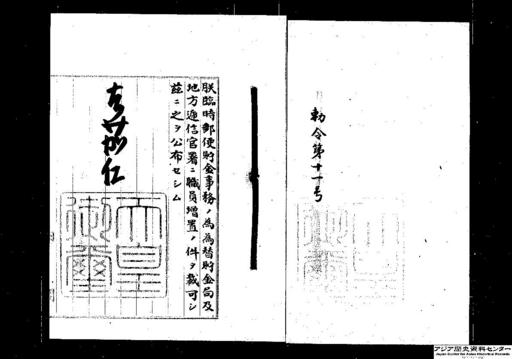 勅令第十一号
朕臨時郵便貯金事務ノ為為替貯金局及
地方逓信官署ニ職員増置ノ件ヲ裁可シ
茲ニ之ヲ公布セシム
嘉仁
天皇
御璽
アジア歴史資料センター
Japan Center for Asian Historical Records